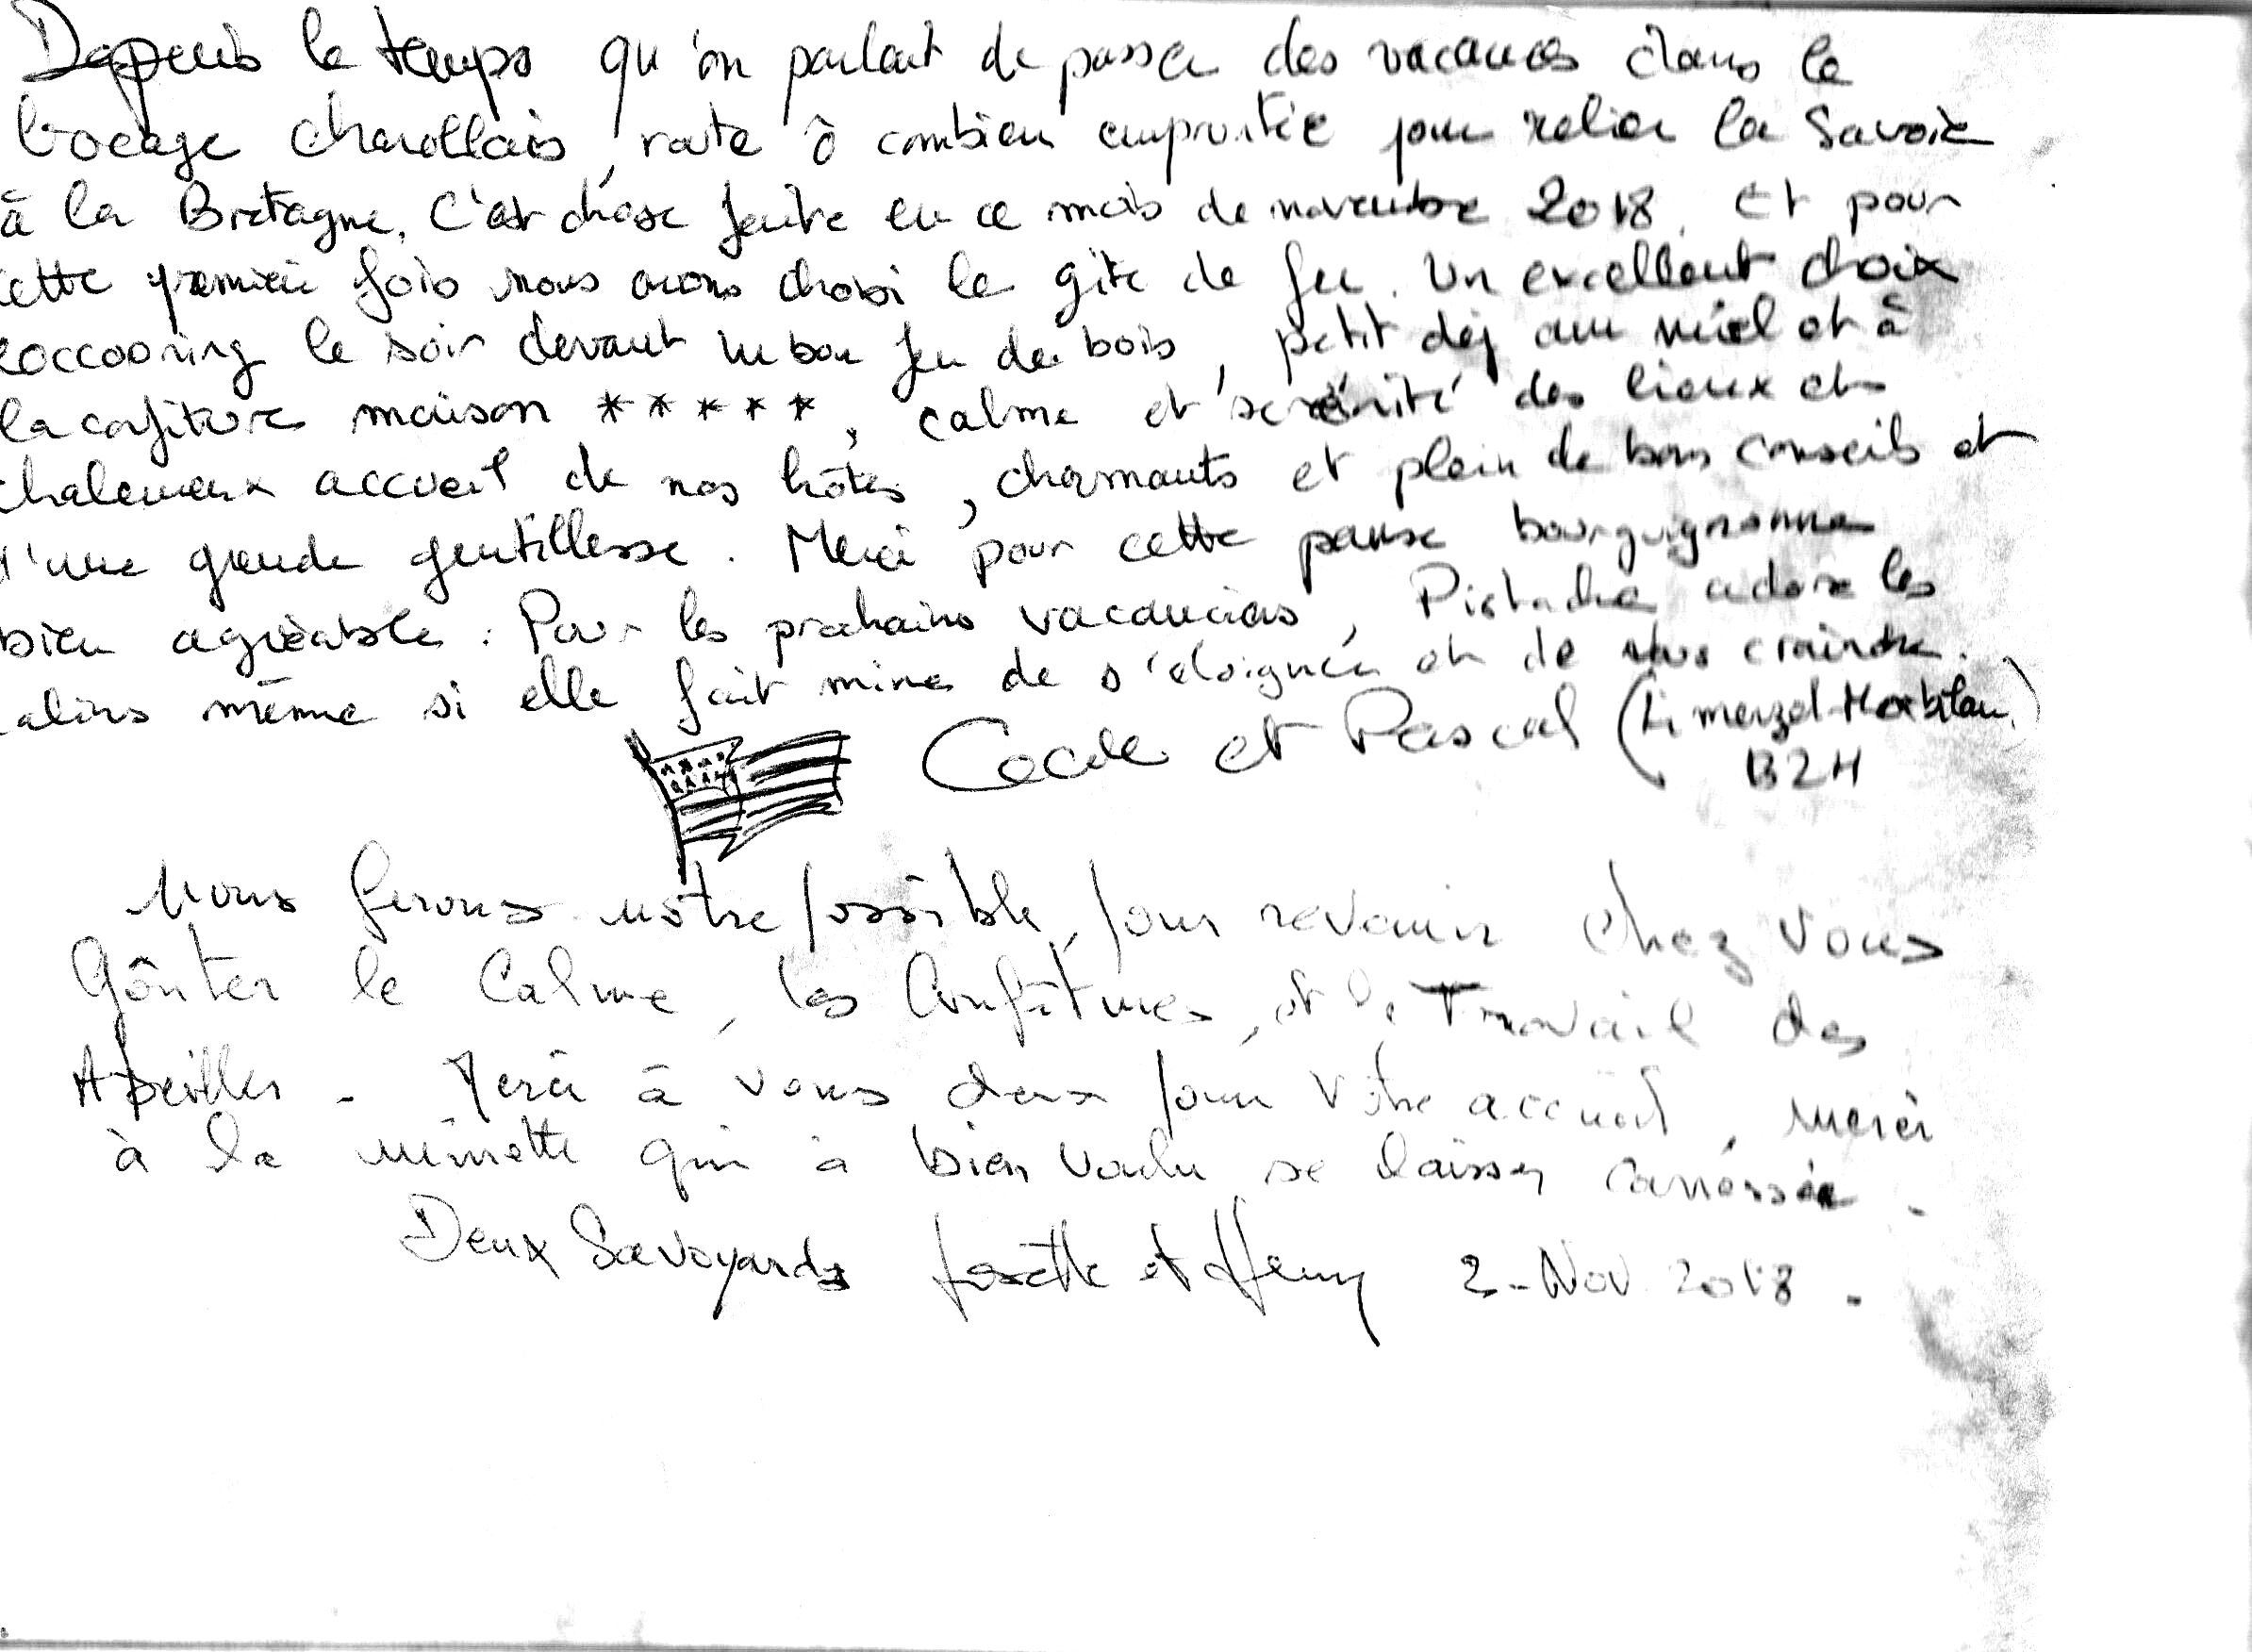 Depuis le temps qu'on parlait de passer des vacances dans le
bocage charollais, route ô combien empruntée pour relier la Savoie
à la Bretagne. C'est chose faite en ce mois de novembre 2018. Et pour
cette première fois nous avons choisi le gîte de feu. Un excellent choix
coccooning le soir devant un bon feu de bois, petit déj au miel et à
la confiture maison *****, calme et sérénité des lieux et
chaleureux accueil de nos hôtes, charmants et plein de bons conseils et
d'une grande gentillesse. Merci pour cette pause bourguignonne
bien agréable. Pour les prochains vacanciers, Pistache adore les
calins même si elle fait mine de s'éloigner et de vous craindre.
Cécile et Pascal (Limerzel-Morbihan)
BZH
Nous ferons nôtre possible, pour revenir chez vous
Goûter le Calme, les Confitures, et le Travail des
Abeilles - Merci à vous deux pour Votre accueil, merci
à la minette qui à bien voulu se laisser carressée -
Deux Savoyards Josette et 2-Nov 2018 -